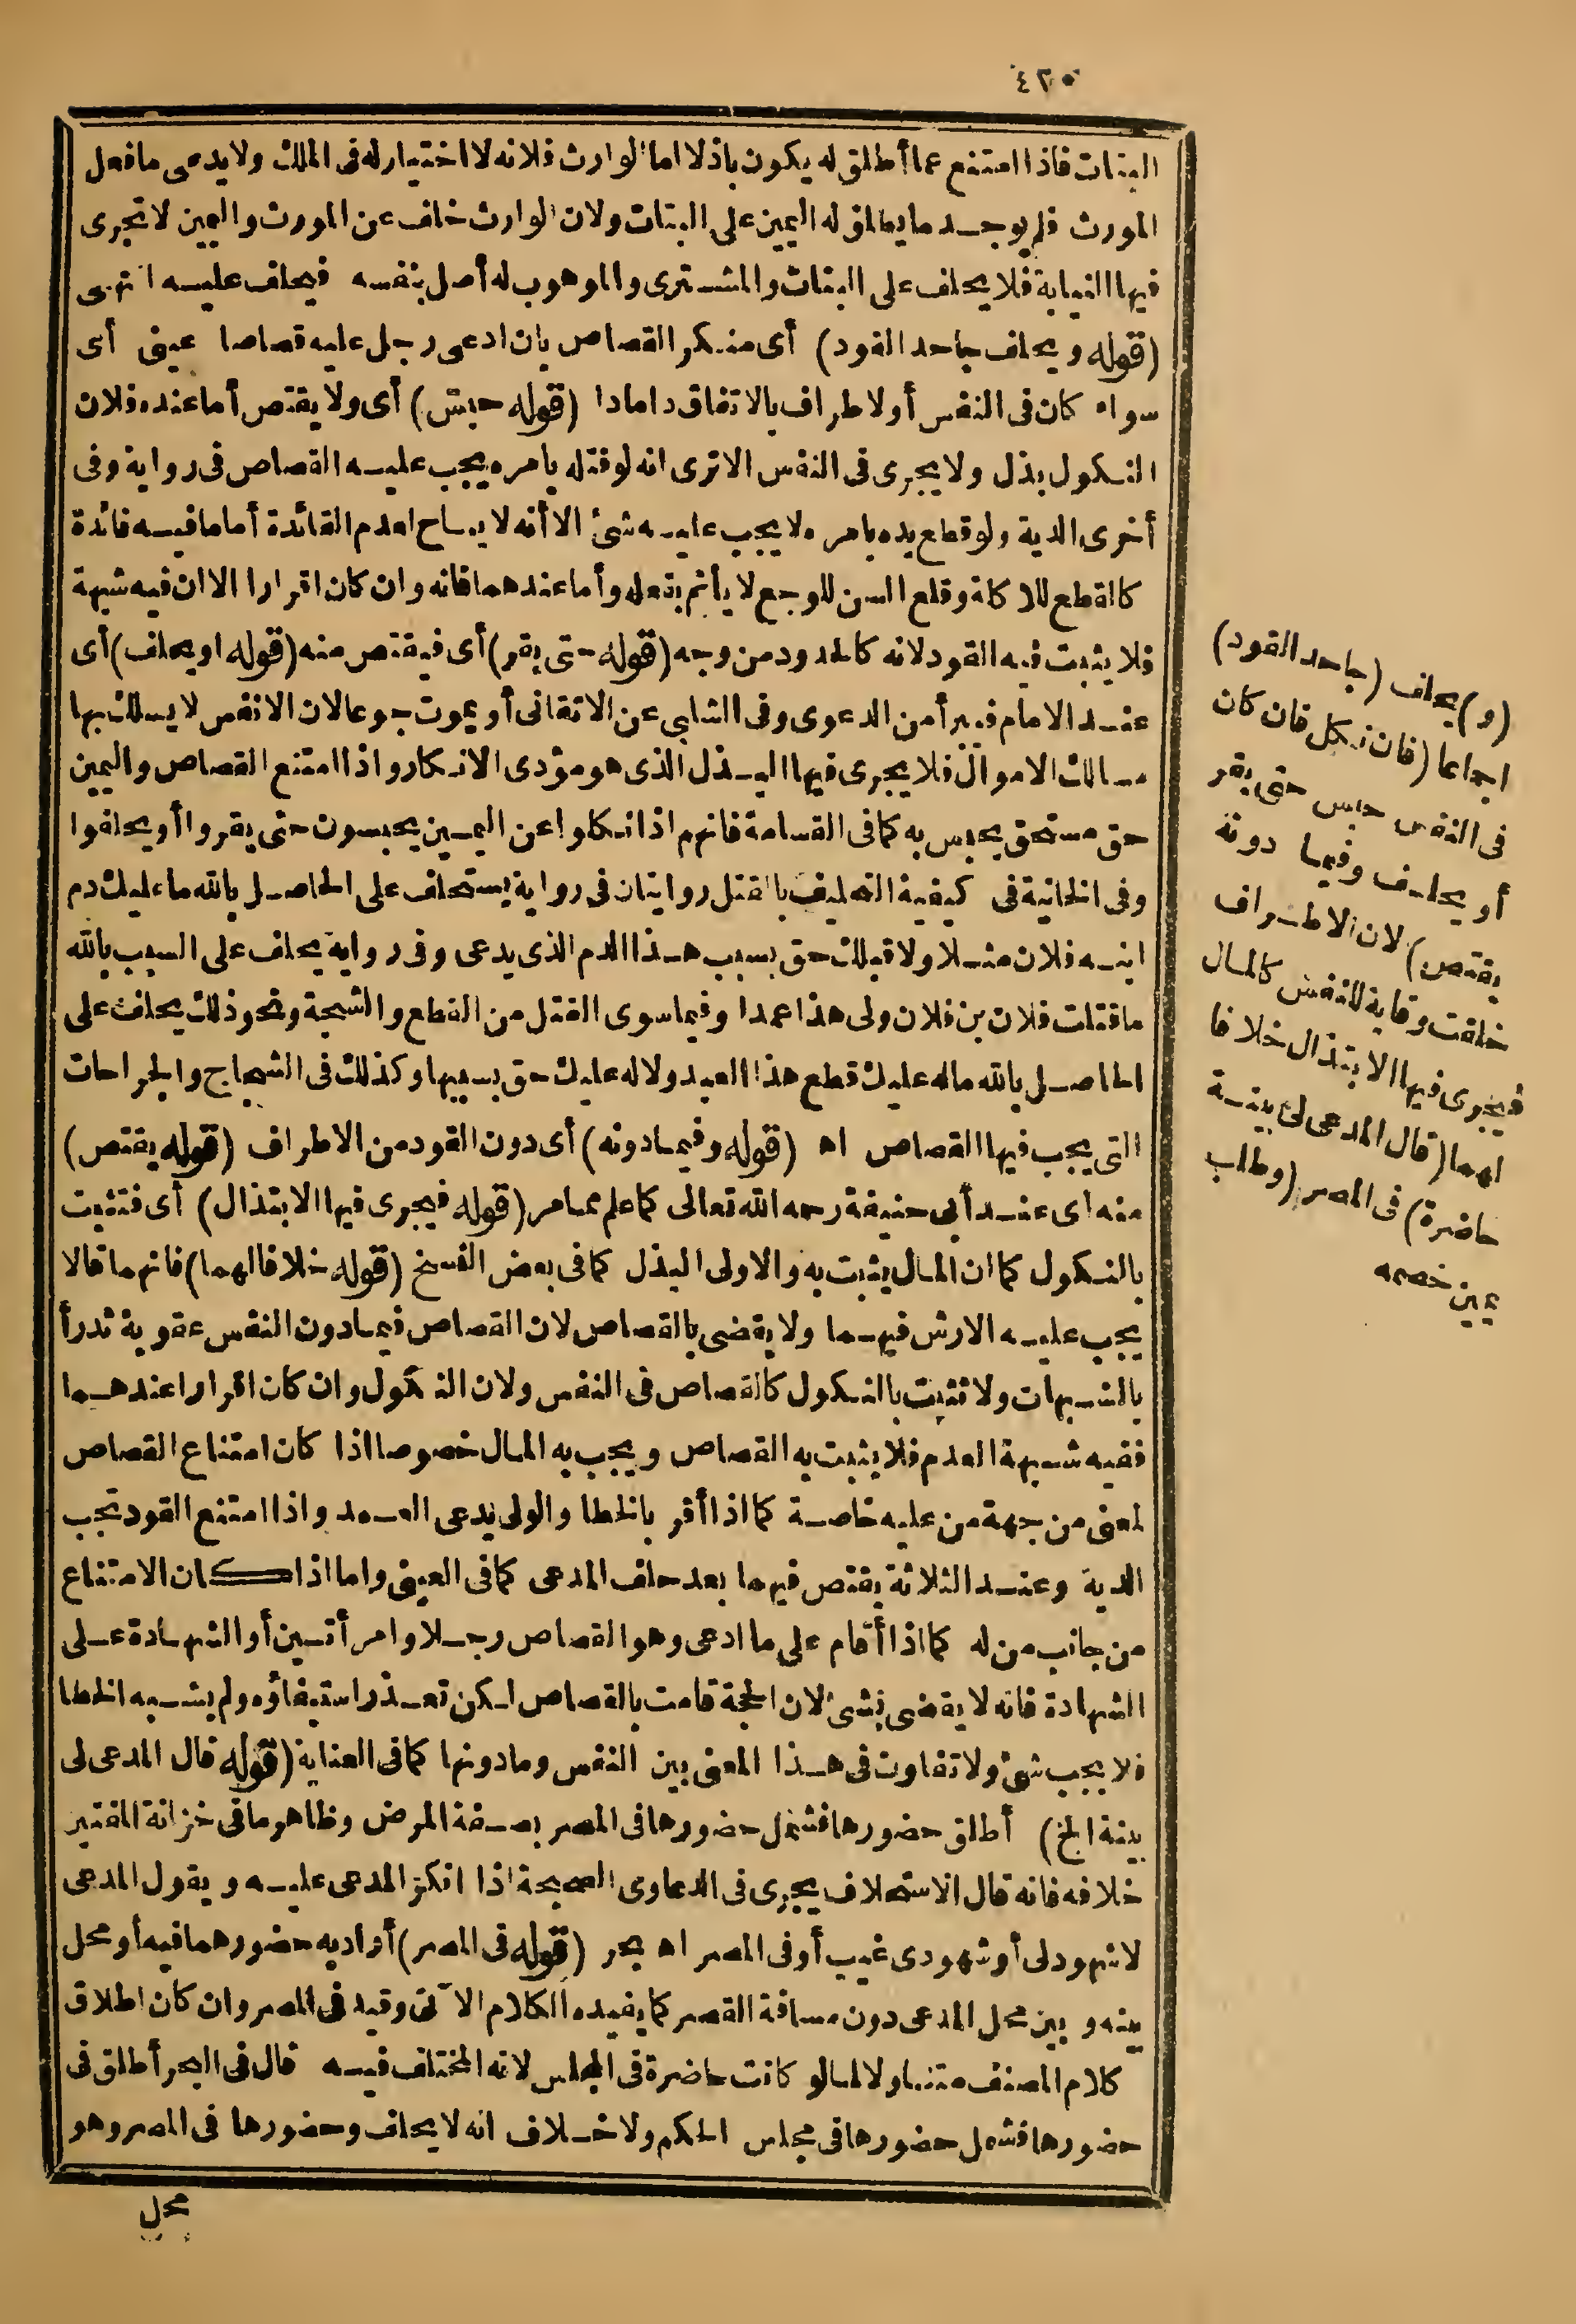 ٤٢٥
البتات فاذا امتنع عما أطلق له يكون باذلا اما الوارث فلانه لا اختيار له فى الملك ولا يدعى ما فعل
المورث فلم يوجد ما يطلق له اليمين على البتات ولان الوارث خلف عن المورث واليمين لا تجرى
فيها النيابة فلا يحلف على البتات والمشترى والموهوب له أصل بنفسه فيحلف عليه انتهى
(قوله ويحلف جاحد القود) أى منكر القصاص بان ادعى رجل عليه قصاصا عينى أى
سواء كان فى النفس أولا طراف بالاتفاق داماد (قوله حبس) أى ولا يقتص أما عنده فلان
النكول بذل ولا يجرى فى النفس الاترى انه لو قتله بامره يجب عليه القصاص فى رواية وفى
أخرى الدية ولو قطع يده بامره لا يجب عليه شئ الا أنه لا يباح لعدم الفائدة أما ما فيه فائدة
كالقطع للاكلة وقلع السن للوجع لا يأثم بفعله وأما عندهما فانه وان كان اقرارا الا ان فيه شبهة
فلا يثبت فيه القود لانه كالحدود من وجه (قوله حتى يقر) أى فيقتص منه (قوله او يحلف) أى
عند الامام فيبرأ من الدعوى وفى الشلبى عن الاتقانى أو يموت جوعا لان الانفس لا يسلك بها
مسالك الاموال فلا يجرى فيها البذل الذى هو مؤدى الانكار واذا امتنع القصاص واليمين
حق مستحق يحبس به كما فى القسامة فانهم اذا نكلوا عن اليمين يحبسون حتى يقروا أو يحلفوا
وفى الخانية فى كيفية التحليف بالقتل روايتان فى رواية يستحلف على الحاصل بالله ما عليك دم
ابنه فلان مثلا ولا قبلك حق بسبب هذا الدم الذى يدعى وفى رواية يحلف على السبب بالله
ما قتلت فلان بن فلان ولى هذا عمدا وفيما سوى القتل من القطع والشجة ونحو ذلك يحلف على
الحاصل بالله ماله عليك قطع هذا العبد ولا له عليك حق بسببها وكذلك فى الشجاج والجراحات
التى يجب فيها القصاص اه (قوله وفيما دونه) أى دون القود من الاطراف (قوله يقتص)
منه اى عند أبى حنيفة رحمه الله تعالى كما علم مما مر (قوله فيجرى فيها الابتذال) أى فتثبت
بالنكول كما ان المال يثبت به والاولى البذل كما فى بعض النسخ (قوله خلافا لهما) فانهما قالا
يجب عليه الارش فيهما ولا يقضى بالقصاص لان القصاص فيما دون النفس عقوبة تدرأ
بالشبهات ولا تثبت بالنكول كالقصاص فى النفس ولان النكول وان كان اقرارا عندهما
ففيه شبهة العدم فلا يثبت به القصاص ويجب به المال خصوصا اذا كان امتناع القصاص
لمعنى من جهة من عليه خاصة كما اذا أقر بالخطا والولى يدعى العمد واذا امتنع القود تجب
الدية وعند الثلاثة يقتص فيهما بعد حلف المدعى كما فى العينى واما اذا كان الامتناع
من جانب من له كما اذا أقام على ما ادعى وهو القصاص رجلا وامرأتين أو الشهادة على
الشهادة فانه لا يقضى بشئ لان الحجة قامت بالقصاص لكن تعذر استيفاؤه ولم يشبه الخطا
فلا يجب شئ ولا تفاوت فى هذا المعنى بين النفس وما دونها كما فى العناية (قوله قال المدعى لى
بينة الخ) أطلق حضورها فشمل حضورها فى المصر بصفة المرض وظاهر ما فى خزانة المفتين
خلافه فانه قال الاستحلاف يجرى فى الدعاوى الصحيحة اذا انكر المدعى عليه ويقول المدعى
لا شهود لى أو شهودى غيب أو فى المصر اه بحر (قوله فى المصر) أراد به حضورهما فيه أو محل
بينه وبين محل المدعى دون مسافة القصر كما يفيده الكلام الآتى وقيد فى المصر وان كان اطلاق
كلام المصنف متناولا لما لو كانت حاضرة فى المجلس لانه المختلف فيه قال فى البحر أطلق فى
حضورها فشمل حضورها فى مجلس الحكم ولا خلاف انه لا يحلف وحضورها فى المصر وهو
محل
(و) يحلف (جاحد القود)
اجماعا (فان نكل فان كان
فى النفس حبس حتى يقر
أو يحلف وفيما دونه
يقتص) لان الاطراف
خلقت وقاية للنفس كالمال
فيجرى فيها الابتذال خلافا
لهما (قال المدعى لى بينة
حاضرة) فى المصر (وطلب
يمين خصمه